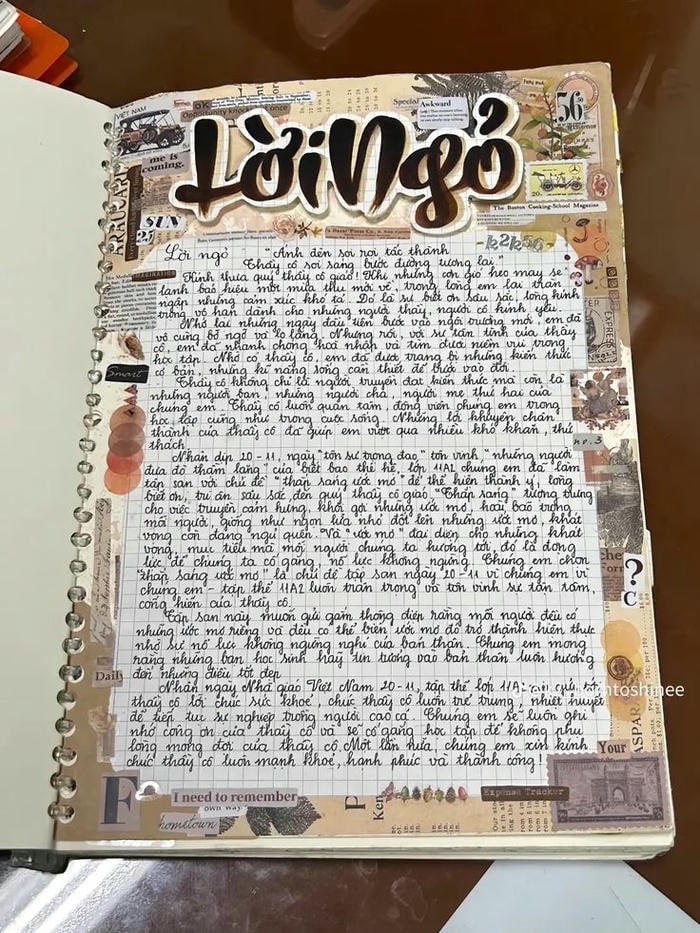 Lời Ngỏ
VIỆT NAM
Opportunity knocks once
Special
Awkward
56
me is
coming.
The Boston Cooking-School Magazine
SUN
25
-k2k56-
Lời ngỏ - "Ánh đèn soi rọi tấc thành
Thầy cô soi sáng bước đường tương lai"
Kính thưa quý thầy cô giáo! Khi những cơn gió heo may se
lạnh báo hiệu một mùa thu mới về, trong lòng em lại tràn
ngập những cảm xúc khó tả. Đó là sự biết ơn sâu sắc, lòng kính
trọng vô hạn dành cho những người thầy, người cô kính yêu.
Nhớ lại những ngày đầu tiên bước vào ngôi trường mới, em đã
vô cùng bỡ ngỡ và lo lắng. Nhưng rồi, với sự tận tình của thầy
cô, em đã nhanh chóng hoà nhập và tìm được niềm vui trong
học tập. Nhờ có thầy cô, em đã được trang bị những kiến thức
cơ bản, những kĩ năng sống cần thiết để bước vào đời.
Thầy cô không chỉ là người truyền đạt kiến thức mà còn là
những người bạn, những người cha, người mẹ thứ hai của
chúng em. Thầy cô luôn quan tâm, động viên chúng em trong
học tập cũng như trong cuộc sống. Những lời khuyên chân
thành của thầy cô đã giúp em vượt qua nhiều khó khăn, thử
thách.
Nhân dịp 20-11, ngày "tôn sư trọng đạo", tôn vinh "những người
đưa đò thầm lặng" của biết bao thế hệ, lớp 11A2 chúng em đã làm
tập san với chủ đề "thắp sáng ước mơ" để thể hiện thành ý, lòng
biết ơn, tri ân sâu sắc đến quý thầy cô giáo. "Thắp sáng" tượng trưng
cho việc truyền cảm hứng, khơi gợi những ước mơ, hoài bão trong
mỗi người, giống như ngọn lửa nhỏ đốt lên những ước mơ, khát
vọng còn đang ngủ quên. Và "ước mơ" đại diện cho những khát
vọng, mục tiêu mà mỗi người chúng ta hướng tới, đó là động
lực để chúng ta cố gắng, nỗ lực không ngừng. Chúng em chọn
"thắp sáng ước mơ" là chủ đề tập san ngày 20-11 vì chúng em vì
chúng em - tập thể 11A2 luôn trân trọng và tôn vinh sự tận tâm,
cống hiến của thầy cô.
Tập san này muốn gửi gắm thông điệp rằng mỗi người đều có
những ước mơ riêng và đều có thể biến ước mơ đó trở thành hiện thực
nhờ sự nỗ lực không ngừng nghỉ của bản thân. Chúng em mong
rằng những bạn học sinh hãy tin tưởng vào bản thân luôn hướng
đến những điều tốt đẹp.
Nhân ngày Nhà giáo Việt Nam 20-11, tập thể lớp 11A2 gửi tới
thầy cô lời chúc sức khoẻ, chúc thầy cô luôn trẻ trung, nhiệt huyết
để tiếp tục sự nghiệp trồng người cao cả. Chúng em sẽ luôn ghi
nhớ công ơn của thầy cô và sẽ cố gắng học tập để không phụ
lòng mong đợi của thầy cô. Một lần nữa, chúng em xin kính
chúc thầy cô luôn mạnh khoẻ, hạnh phúc và thành công!
Smart
no.3
EXPRESS
?
C
Daily
Your
F
I need to remember
own way
hometown
P
Ken
Expense Tracker